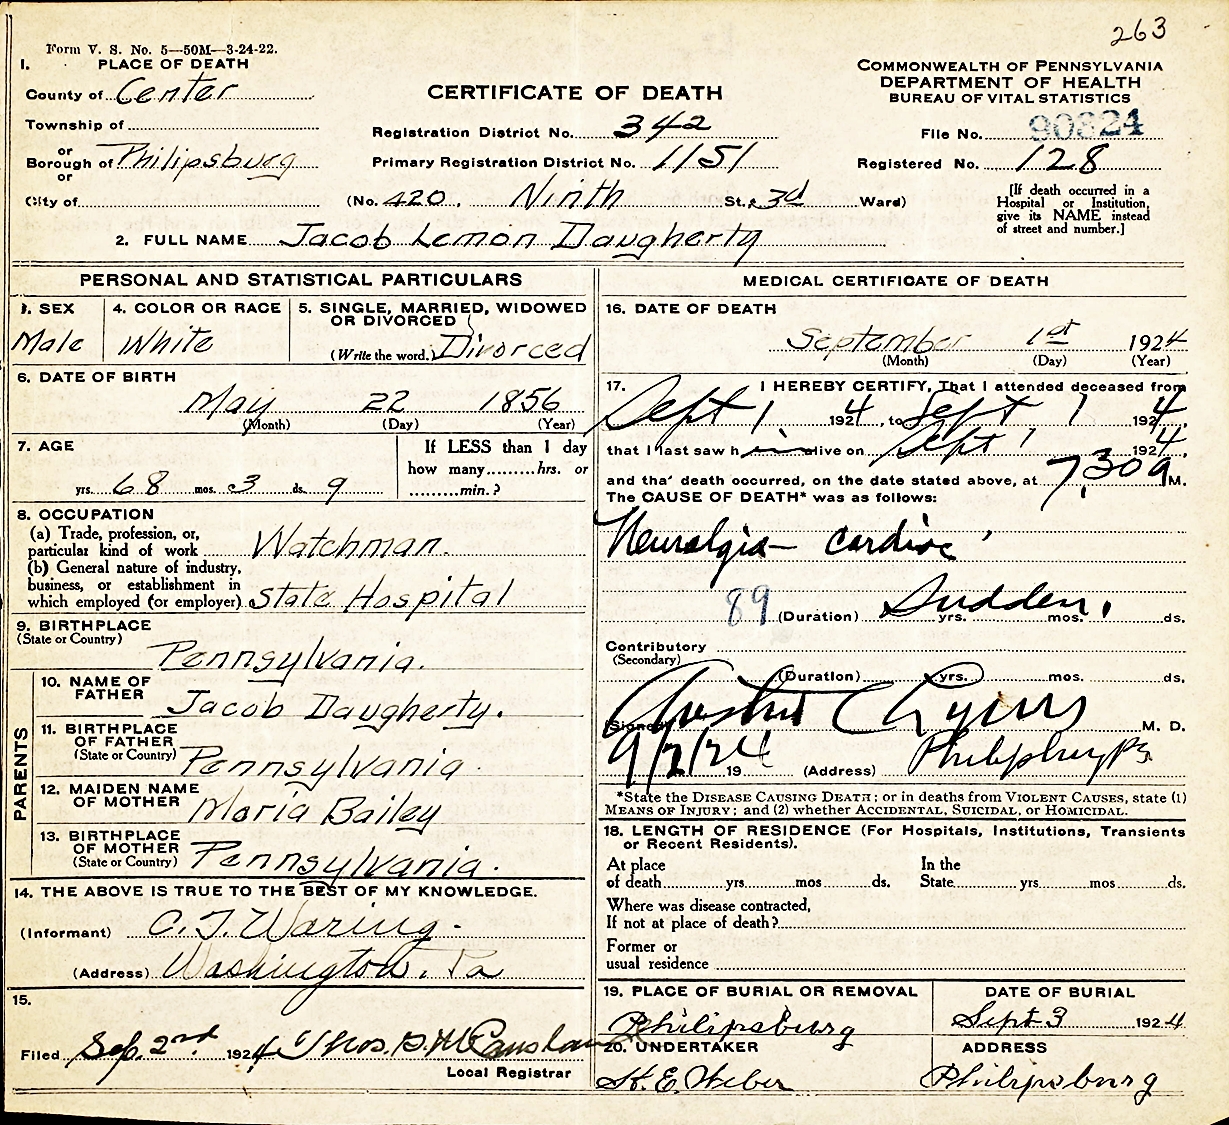 263
Form V. S. No. 5—50M—3-24-22.
1. PLACE OF DEATH
County of Center
Township of
or
Borough of Philipsburg
or
City of
CERTIFICATE OF DEATH
Registration District No. 342
Primary Registration District No. 1151
(No. 420, Ninth St., 3d Ward)
COMMONWEALTH OF PENNSYLVANIA
DEPARTMENT OF HEALTH
BUREAU OF VITAL STATISTICS
File No. 90324
Registered No. 128
[If death occurred in a
Hospital or Institution,
give its NAME instead
of street and number.]
2. FULL NAME Jacob Lemon Daugherty
PERSONAL AND STATISTICAL PARTICULARS
3. SEX
Male
4. COLOR OR RACE
White
5. SINGLE, MARRIED, WIDOWED
OR DIVORCED
(Write the word.) Divorced
6. DATE OF BIRTH
May 22 1856
(Month) (Day) (Year)
7. AGE
yrs. 68 mos. 3 ds. 9
If LESS than 1 day
how many.........hrs. or
.........min.?
8. OCCUPATION
(a) Trade, profession, or,
particular kind of work Watchman.
(b) General nature of industry,
business, or establishment in
which employed (or employer) State Hospital
9. BIRTHPLACE
(State or Country)
Pennsylvania.
PARENTS
10. NAME OF
FATHER
Jacob Daugherty.
11. BIRTHPLACE
OF FATHER
(State or Country) Pennsylvania.
12. MAIDEN NAME
OF MOTHER Maria Bailey
13. BIRTHPLACE
OF MOTHER
(State or Country) Pennsylvania.
14. THE ABOVE IS TRUE TO THE BEST OF MY KNOWLEDGE.
(Informant) C. T. Waring.
(Address) Washington, Pa
15.
Filed Sep. 2nd 1924 Thos. D.
Local Registrar
MEDICAL CERTIFICATE OF DEATH
16. DATE OF DEATH
September 1st 1924
(Month) (Day) (Year)
17. I HEREBY CERTIFY, That I attended deceased from
Sept 1 1924, to Sept 1 1924,
that I last saw him alive on Sept 1 1924,
and that death occurred, on the date stated above, at 7,30a M.
The CAUSE OF DEATH* was as follows:
Neuralgia- cardiac
89 (Duration) Sudden. yrs. mos. ds.
Contributory
(Secondary)
(Duration) yrs. mos. ds.
(Signed) M. D.
9/2/24 19 (Address) Philipsburg Pa
*State the DISEASE CAUSING DEATH; or in deaths from VIOLENT CAUSES, state (1)
MEANS OF INJURY; and (2) whether ACCIDENTAL, SUICIDAL, or HOMICIDAL.
18. LENGTH OF RESIDENCE (For Hospitals, Institutions, Transients
or Recent Residents).
At place
of death yrs mos ds.
In the
State yrs mos ds.
Where was disease contracted,
If not at place of death?
Former or
usual residence
19. PLACE OF BURIAL OR REMOVAL
Philipsburg
DATE OF BURIAL
Sept 3 1924
20. UNDERTAKER
H. E. Weber
ADDRESS
Philipsburg